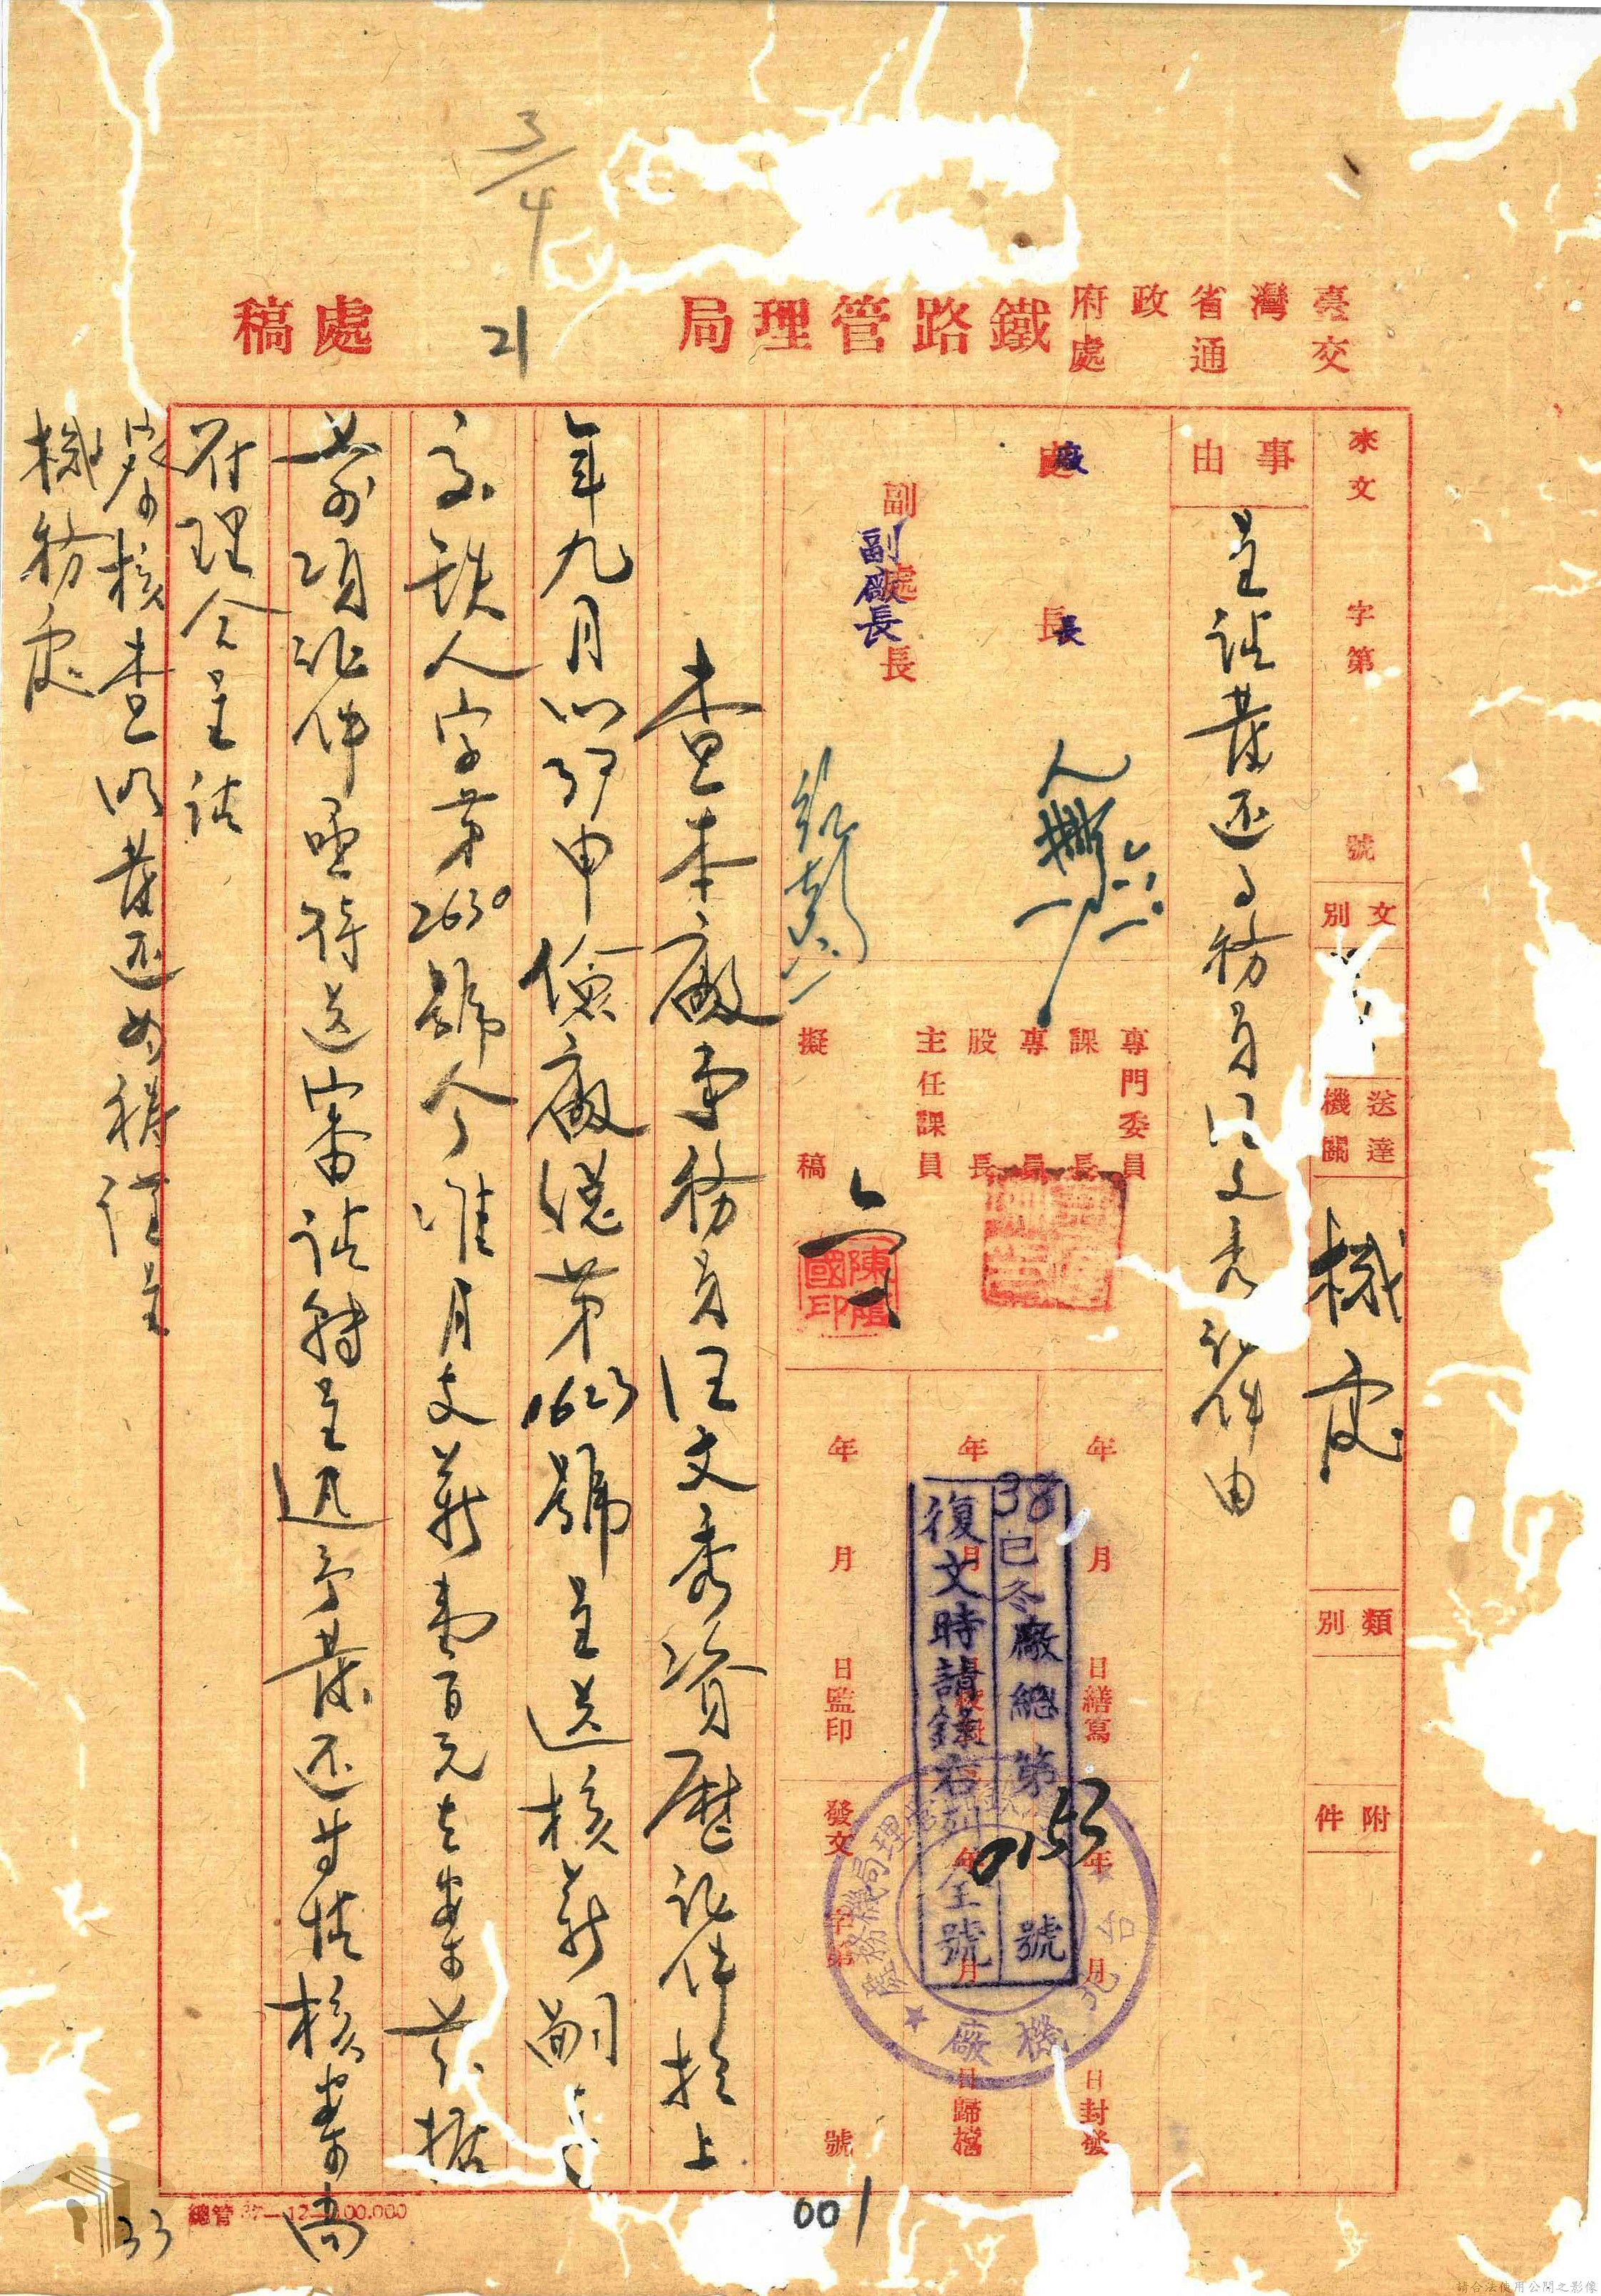 3/4
臺灣省政府
交通處
鐵路管理局
21
處稿
來文
字第
號
文別
送達機關
機處
類別
附件
事由
呈請發還事務員汪文秀証件由
處長
廠長
副處長
副廠長
專門委員
課長
專員
股長
主任課員
擬稿
年月日繕寫
年月日監印
年月日封發
年月日歸檔
發文
字第
號
38已冬廠總第0153號
復文時請錄右列全號
台北機廠
查本廠事務員汪文秀資歷証件於上
年九月以卯申儉廠總第1623號呈送核薪嗣
鉄人字第2630號令准月支薪壹百元在案茲據
前項証件亟待送審請轉呈迅予發還等情核案尚
符理合呈請
鑒核查明發還為禱謹呈
機務處
總管37-12-100.000
001
33
請合法使用公開之影像